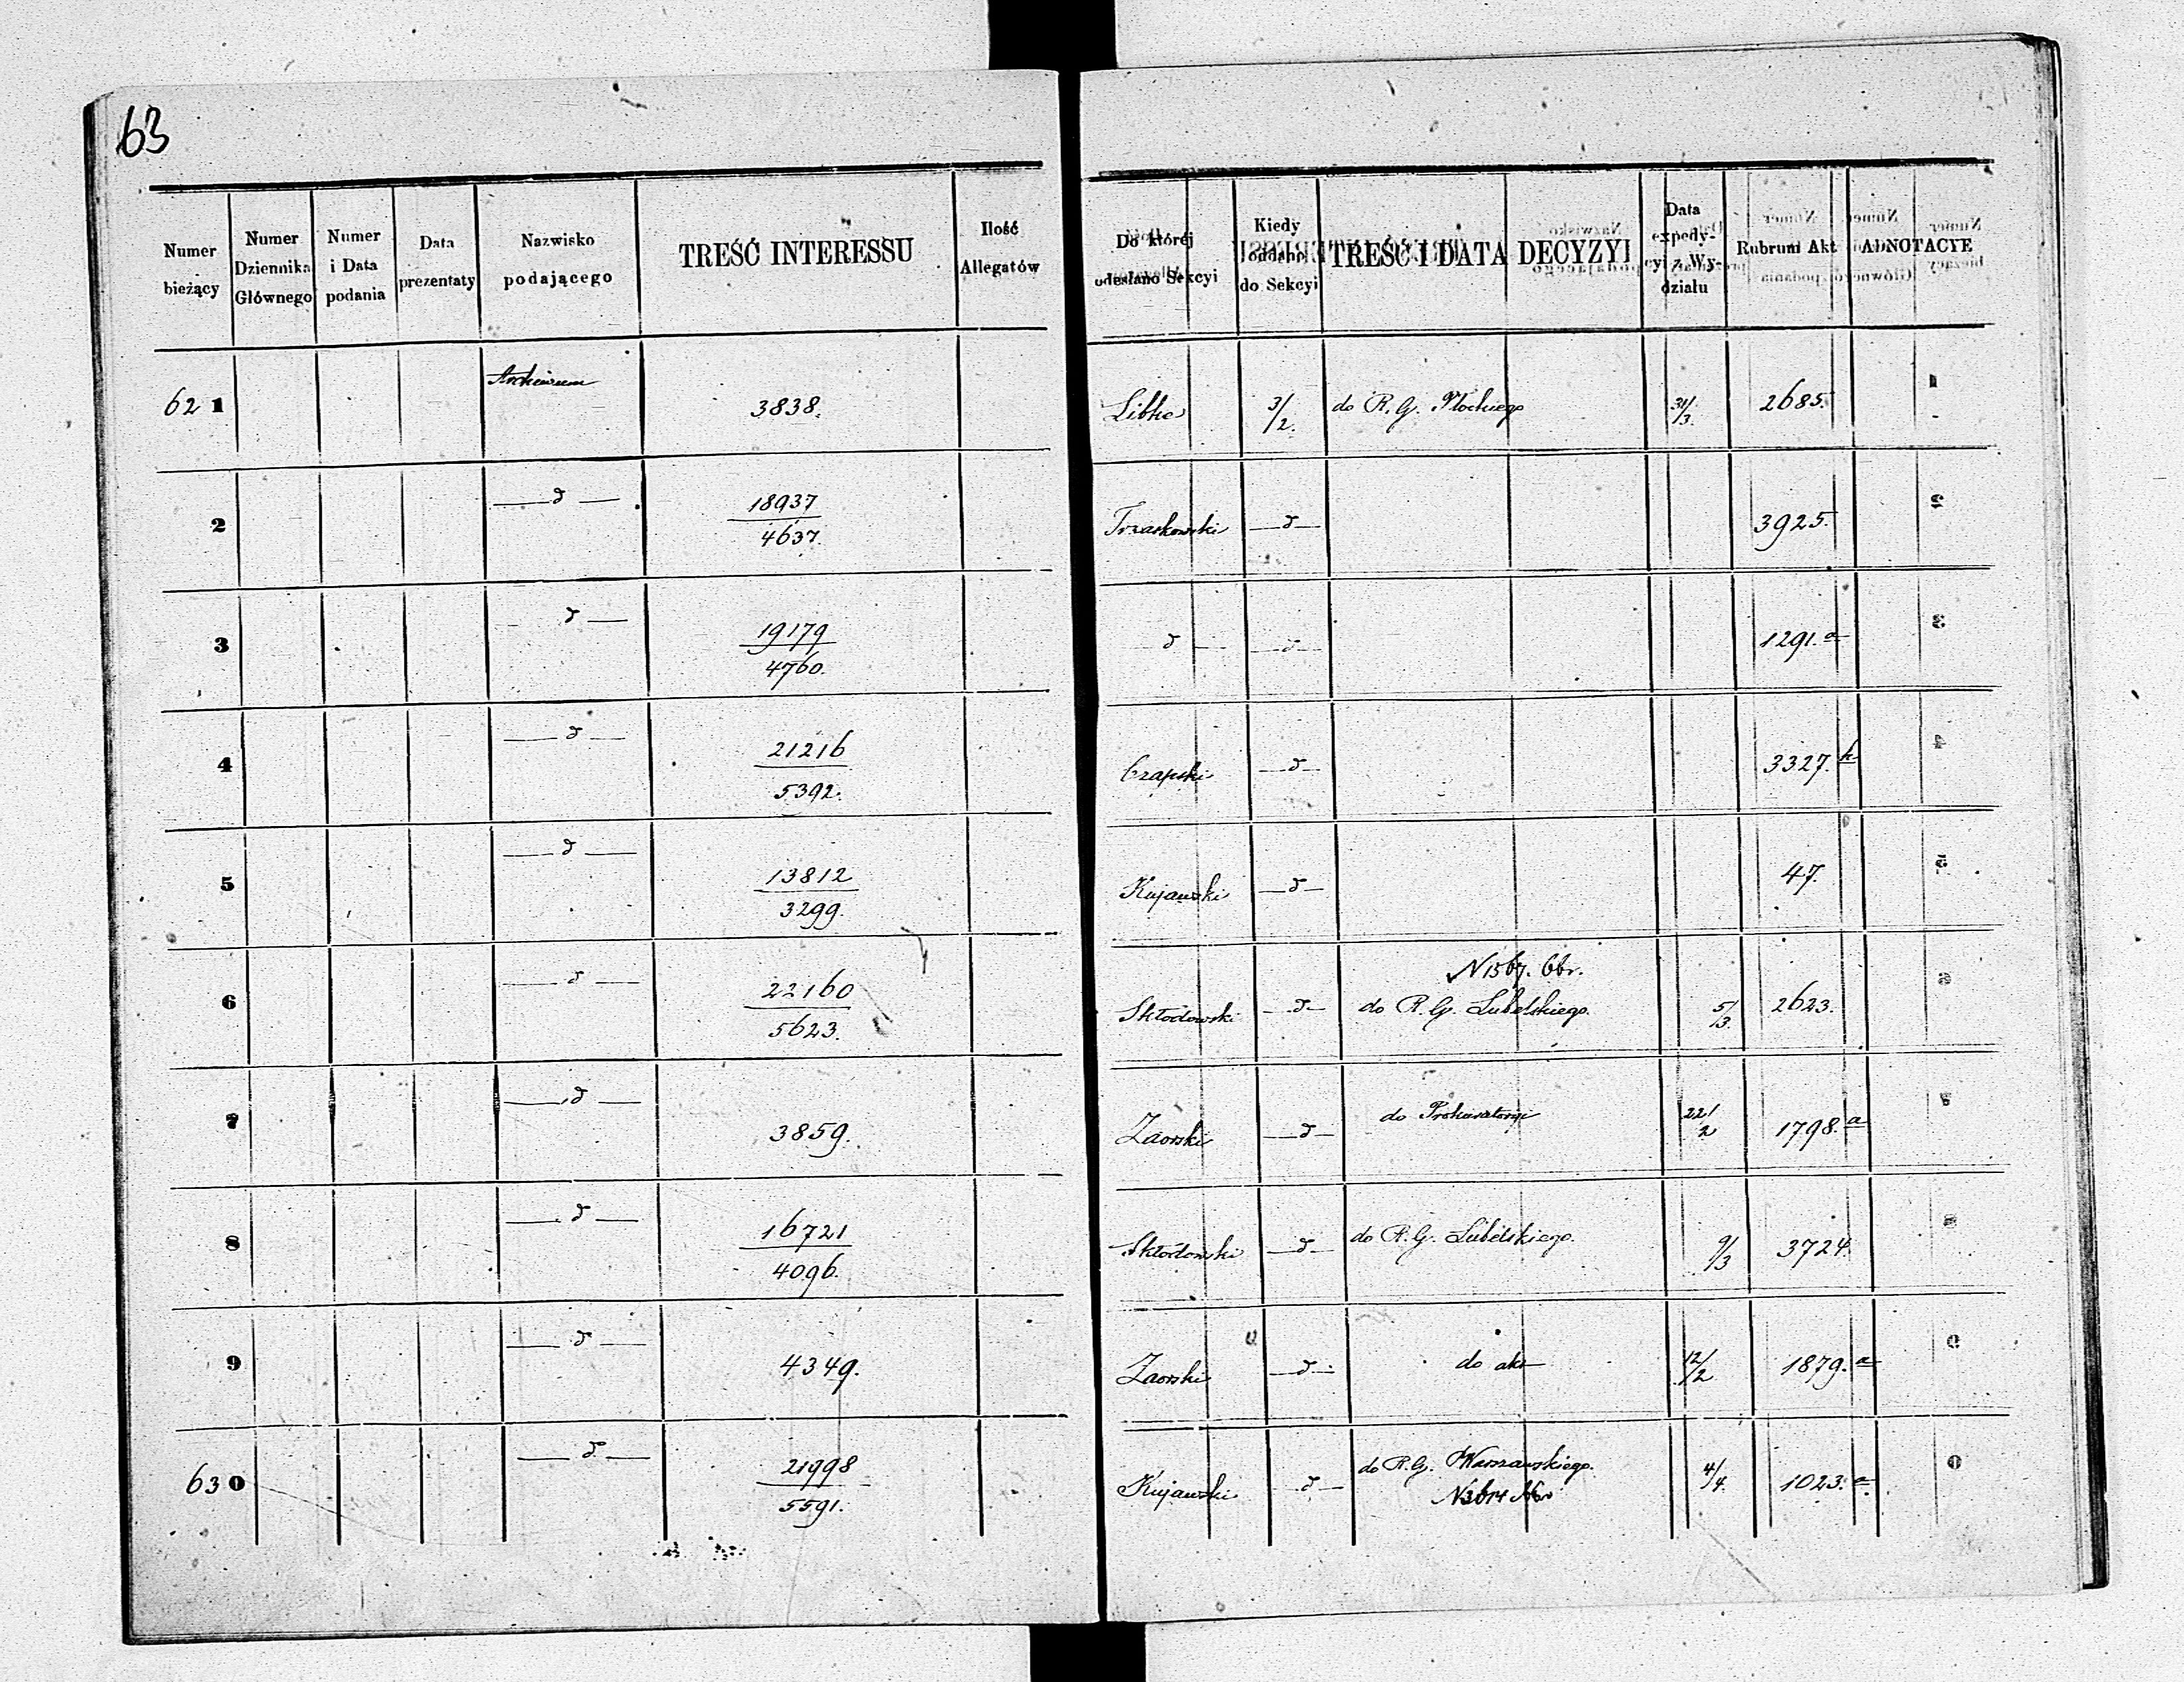 63
Numer bieżący
Numer Dziennika Głównego
Numer i Data podania
Data prezentaty
Nazwisko podającego
TREŚĆ INTERESSU
Ilość Allegatów
Do której odesłano Sekcyi
Kiedy oddano do Sekcyi
TREŚĆ I DATA DECYZYI
Data expedycyi z Wydziału
Rubrum Akt
ADNOTACYE
621 Archiwum 3838. Libke 3/2. do R. G. Płockiego 31/3. 2685.
2 — d — 18937 / 4637. Trzaskowski — d — 3925.
3 d — 19179 / 4760. d — — d — 1291. a
4 — d — 21216 / 5392. Czapski — d — 3327. k
5 — d — 13812 / 3299. Kujawski — d — 47.
6 — d — 22160 / 5623. Skłodowski — d — N 1567. do R. G. Lubelskiego. 5/3. 2623.
7 — d — 3859. Zaorski — d — do Prokuratoryi 22/2 1798. a
8 — d — 16721 / 4096. Skłodowski — d — do R. G. Lubelskiego. 9/3 3724.
9 — d — 4349. Zaorski — d — do akt 12/2 1879. a
630 — d — 21998 / 5591. Kujawski — d — do R. G. Warszawskiego. 4/4. 1023. a